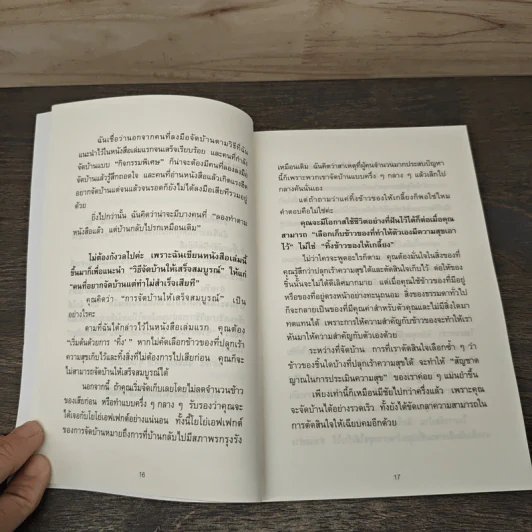 ฉันเชื่อว่านอกจากคนที่ลงมือจัดบ้านตามวิธีที่ฉัน
แนะนำไว้ในหนังสือเล่มแรกจนเสร็จเรียบร้อย และคนที่กำลัง
จัดบ้านแบบ “กิจกรรมพิเศษ” ก็น่าจะต้องมีคนที่ลองลงมือ
จัดบ้านแล้วรู้สึกถอดใจ และคนที่อ่านหนังสือแล้วเกิดแรงฮึด
อยากจัดบ้านแต่จนแล้วจนรอดก็ยังไม่ได้ลงมือเสียทีรวมอยู่
ด้วย
ยิ่งไปกว่านั้น ฉันคิดว่าน่าจะมีบางคนที่ “ลองทำตาม
หนังสือแล้ว แต่บ้านกลับไปรกเหมือนเดิม”
ไม่ต้องกังวลไปค่ะ เพราะฉันเขียนหนังสือเล่มนี้
ขึ้นมาก็เพื่อแนะนำ “วิธีจัดบ้านให้เสร็จสมบูรณ์” ให้แก่
“คนที่อยากจัดบ้านแต่ทำไม่สำเร็จเสียที”
คุณคิดว่า “การจัดบ้านให้เสร็จสมบูรณ์” เป็น
อย่างไรคะ
ตามที่ฉันได้กล่าวไว้ในหนังสือเล่มแรก คุณต้อง
“เริ่มต้นด้วยการ ‘ทิ้ง’” หากไม่คัดเลือกข้าวของที่ปลุกเร้า
ความสุขเก็บไว้และทิ้งสิ่งที่ไม่ต้องการไปเสียก่อน คุณก็จะ
ไม่สามารถจัดบ้านให้เสร็จสมบูรณ์ได้
นอกจากนี้ ถ้าคุณเริ่มจัดเก็บเลยโดยไม่ลดจำนวนข้าว
ของเสียก่อน หรือทำแบบครึ่ง ๆ กลาง ๆ รับรองว่าคุณจะ
ได้เจอโยโย่เอฟเฟกต์อย่างแน่นอน ทั้งนี้โยโย่เอฟเฟกต์
ของการจัดบ้านหมายถึงการที่บ้านกลับไปมีสภาพรกรุงรัง
16
เหมือนเดิม ฉันคิดว่าสาเหตุที่ผู้คนจำนวนมากประสบปัญหา
นี้ก็เพราะพวกเขาจัดบ้านแบบครึ่ง ๆ กลาง ๆ แล้วเลิกไป
กลางคันนั่นเอง
แต่ถ้าถามว่าแค่ทิ้งข้าวของให้เกลี้ยงก็พอใช่ไหม
คำตอบคือไม่ใช่ค่ะ
คุณจะมีโอกาสใช้ชีวิตอย่างที่ฝันไว้ได้ก็ต่อเมื่อคุณ
สามารถ “เลือกเก็บข้าวของที่ทำให้ตัวเองมีความสุขเอา
ไว้” ไม่ใช่ “ทิ้งข้าวของให้เกลี้ยง”
ไม่ว่าใครจะพูดอะไรก็ตาม คุณต้องมั่นใจในสิ่งของที่
คุณรู้สึกว่าปลุกเร้าความสุขได้และตัดสินใจเก็บไว้ ต่อให้ของ
ชิ้นนั้นจะไม่ได้ดีเลิศมากมาย แต่เมื่อคุณใช้ข้าวของที่มีอยู่
หรือของที่อยู่ตรงหน้าอย่างทะนุถนอม สิ่งของธรรมดาทั่วไป
ก็จะกลายเป็นของที่มีคุณค่าสำหรับตัวคุณและไม่มีสิ่งใดมา
ทดแทนได้ เพราะการให้ความสำคัญกับข้าวของจะทำให้เรา
หันมาให้ความสำคัญกับตัวเองได้ด้วย
ระหว่างที่จัดบ้าน การที่เราตัดสินใจเลือกซ้ำ ๆ ว่า
ข้าวของชิ้นใดบ้างที่ปลุกเร้าความสุขได้ จะทำให้ “สัญชาต
ญาณในการประเมินความสุข” ของเราค่อย ๆ แม่นยำขึ้น
เพียงเท่านี้ก็เหมือนมีชัยไปกว่าครึ่งแล้ว เพราะคุณ
จะจัดบ้านได้อย่างรวดเร็ว ทั้งยังได้ขัดเกลาความสามารถใน
การตัดสินใจให้เฉียบคมอีกด้วย
17